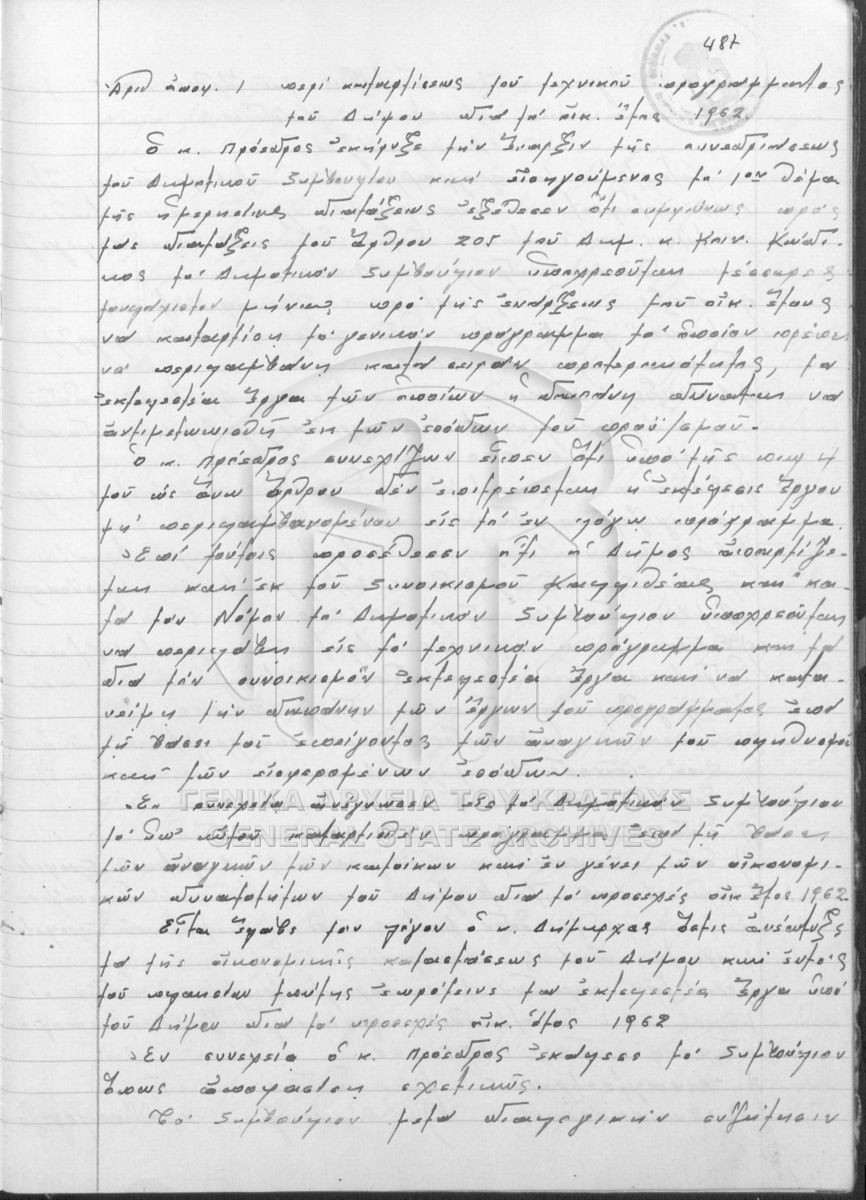 487
Ἀριθ ἀποφ. 1 περί καταρτίσεως τοῦ τεχνικοῦ προγράμματος
τοῦ Δήμου διά τό οἰκ. ἔτος 1962.
Ὁ κ. Πρόεδρος ἐκήρυξε τήν ἔναρξιν τῆς συνεδριάσεως
τοῦ Δημοτικοῦ Συμβουλίου καί εἰσηγούμενος τό 1ον θέμα
τῆς ἡμερησίας διατάξεως ἐξέθεσεν ὅτι συμφώνως πρός
τας διατάξεις τοῦ ἄρθρου 205 τοῦ Δημ. κ. Κοιν. Κώδι-
κος τό Δημοτικόν Συμβούλιον ὑποχρεοῦται τέσσαρες
τουλάχιστον μῆνας πρό τῆς ἐνάρξεως τοῦ οἰκ. ἔτους
να καταρτίση τό γενικόν πρόγραμμα τό ὁποῖον πρέπει
νά περιλαμβάνη κατά σειράν προτεραιότητος, τα
ἐκτελεστέα ἔργα τῶν ὁποίων ἡ δαπάνη δύναται να
ἀντιμετωπισθῆ ἐκ τῶν ἐσόδων τοῦ προϋ/σμοῦ.-
Ὁ κ. Πρόεδρος συνεχίζων εἶπεν ὅτι ὑπό τῆς παρ 4
τοῦ ὡς ἄνω ἄρθρου δέν ἐπιτρέπεται ἡ ἐκτέλεσις ἔργου
μή περιλαμβανομένου εἰς τό ἐν λόγω πρόγραμμα.
Ἐπί τούτοις προσέθεσεν ὅτι ὁ Δῆμος ἀπαρτίζε-
ται καί ἐκ τοῦ Συνοικισμοῦ Καλλιθέας καί κα-
τα τον Νόμον το Δημοτικόν Συμβούλιον ὑποχρεοῦται
να περιλάβη εἰς τό τεχνικόν πρόγραμμα και τα
δια τόν συνοικισμόν ἐκτελεστέα ἔργα καί να κατα-
νείμη τήν δαπάνην τῶν ἔργων τοῦ προγράμματος ἐπί
τῇ βάσει τοῦ ἐπείγοντος τῶν ἀναγκῶν τοῦ πληθυσμοῦ
καί τῶν εἰσφερομένων ἐσόδων.
Ἐν συνεχεία ἀνέγνωσεν εἰς τό Δημοτικόν Συμβούλιον
τό ὑπ' αὐτοῦ καταρτισθέν πρόγραμμα ἐπί τῇ βάσει
τῶν ἀναγκῶν τῶν κατοίκων καί ἐν γένει τῶν οἰκονομι-
κῶν δυνατοτήτων τοῦ Δήμου δια τό προσεχές οἰκ ἔτος 1962.
Εἶτα ἔλαβε τον λόγον ὁ κ. Δήμαρχος ὅστις ἀνέπτυξε
τα τῆς οἰκονομικῆς καταστάσεως τοῦ Δήμου καί ἐντός
τοῦ πλαισίου ταύτης ἐπρότεινε τα ἐκτελεστέα ἔργα ὑπό
τοῦ Δήμου δια τό προσεχές οἰκ. ἔτος 1962
Ἐν συνεχεία ὁ κ. Πρόεδρος ἐκάλεσε τό Συμβούλιον
ὅπως ἀποφασίση σχετικῶς.
Τό Συμβούλιον μετα διαλογικήν συζήτησιν
ΓΕΝΙΚΑ ΑΡΧΕΙΑ ΤΟΥ ΚΡΑΤΟΥΣ
GENERAL STATE ARCHIVES